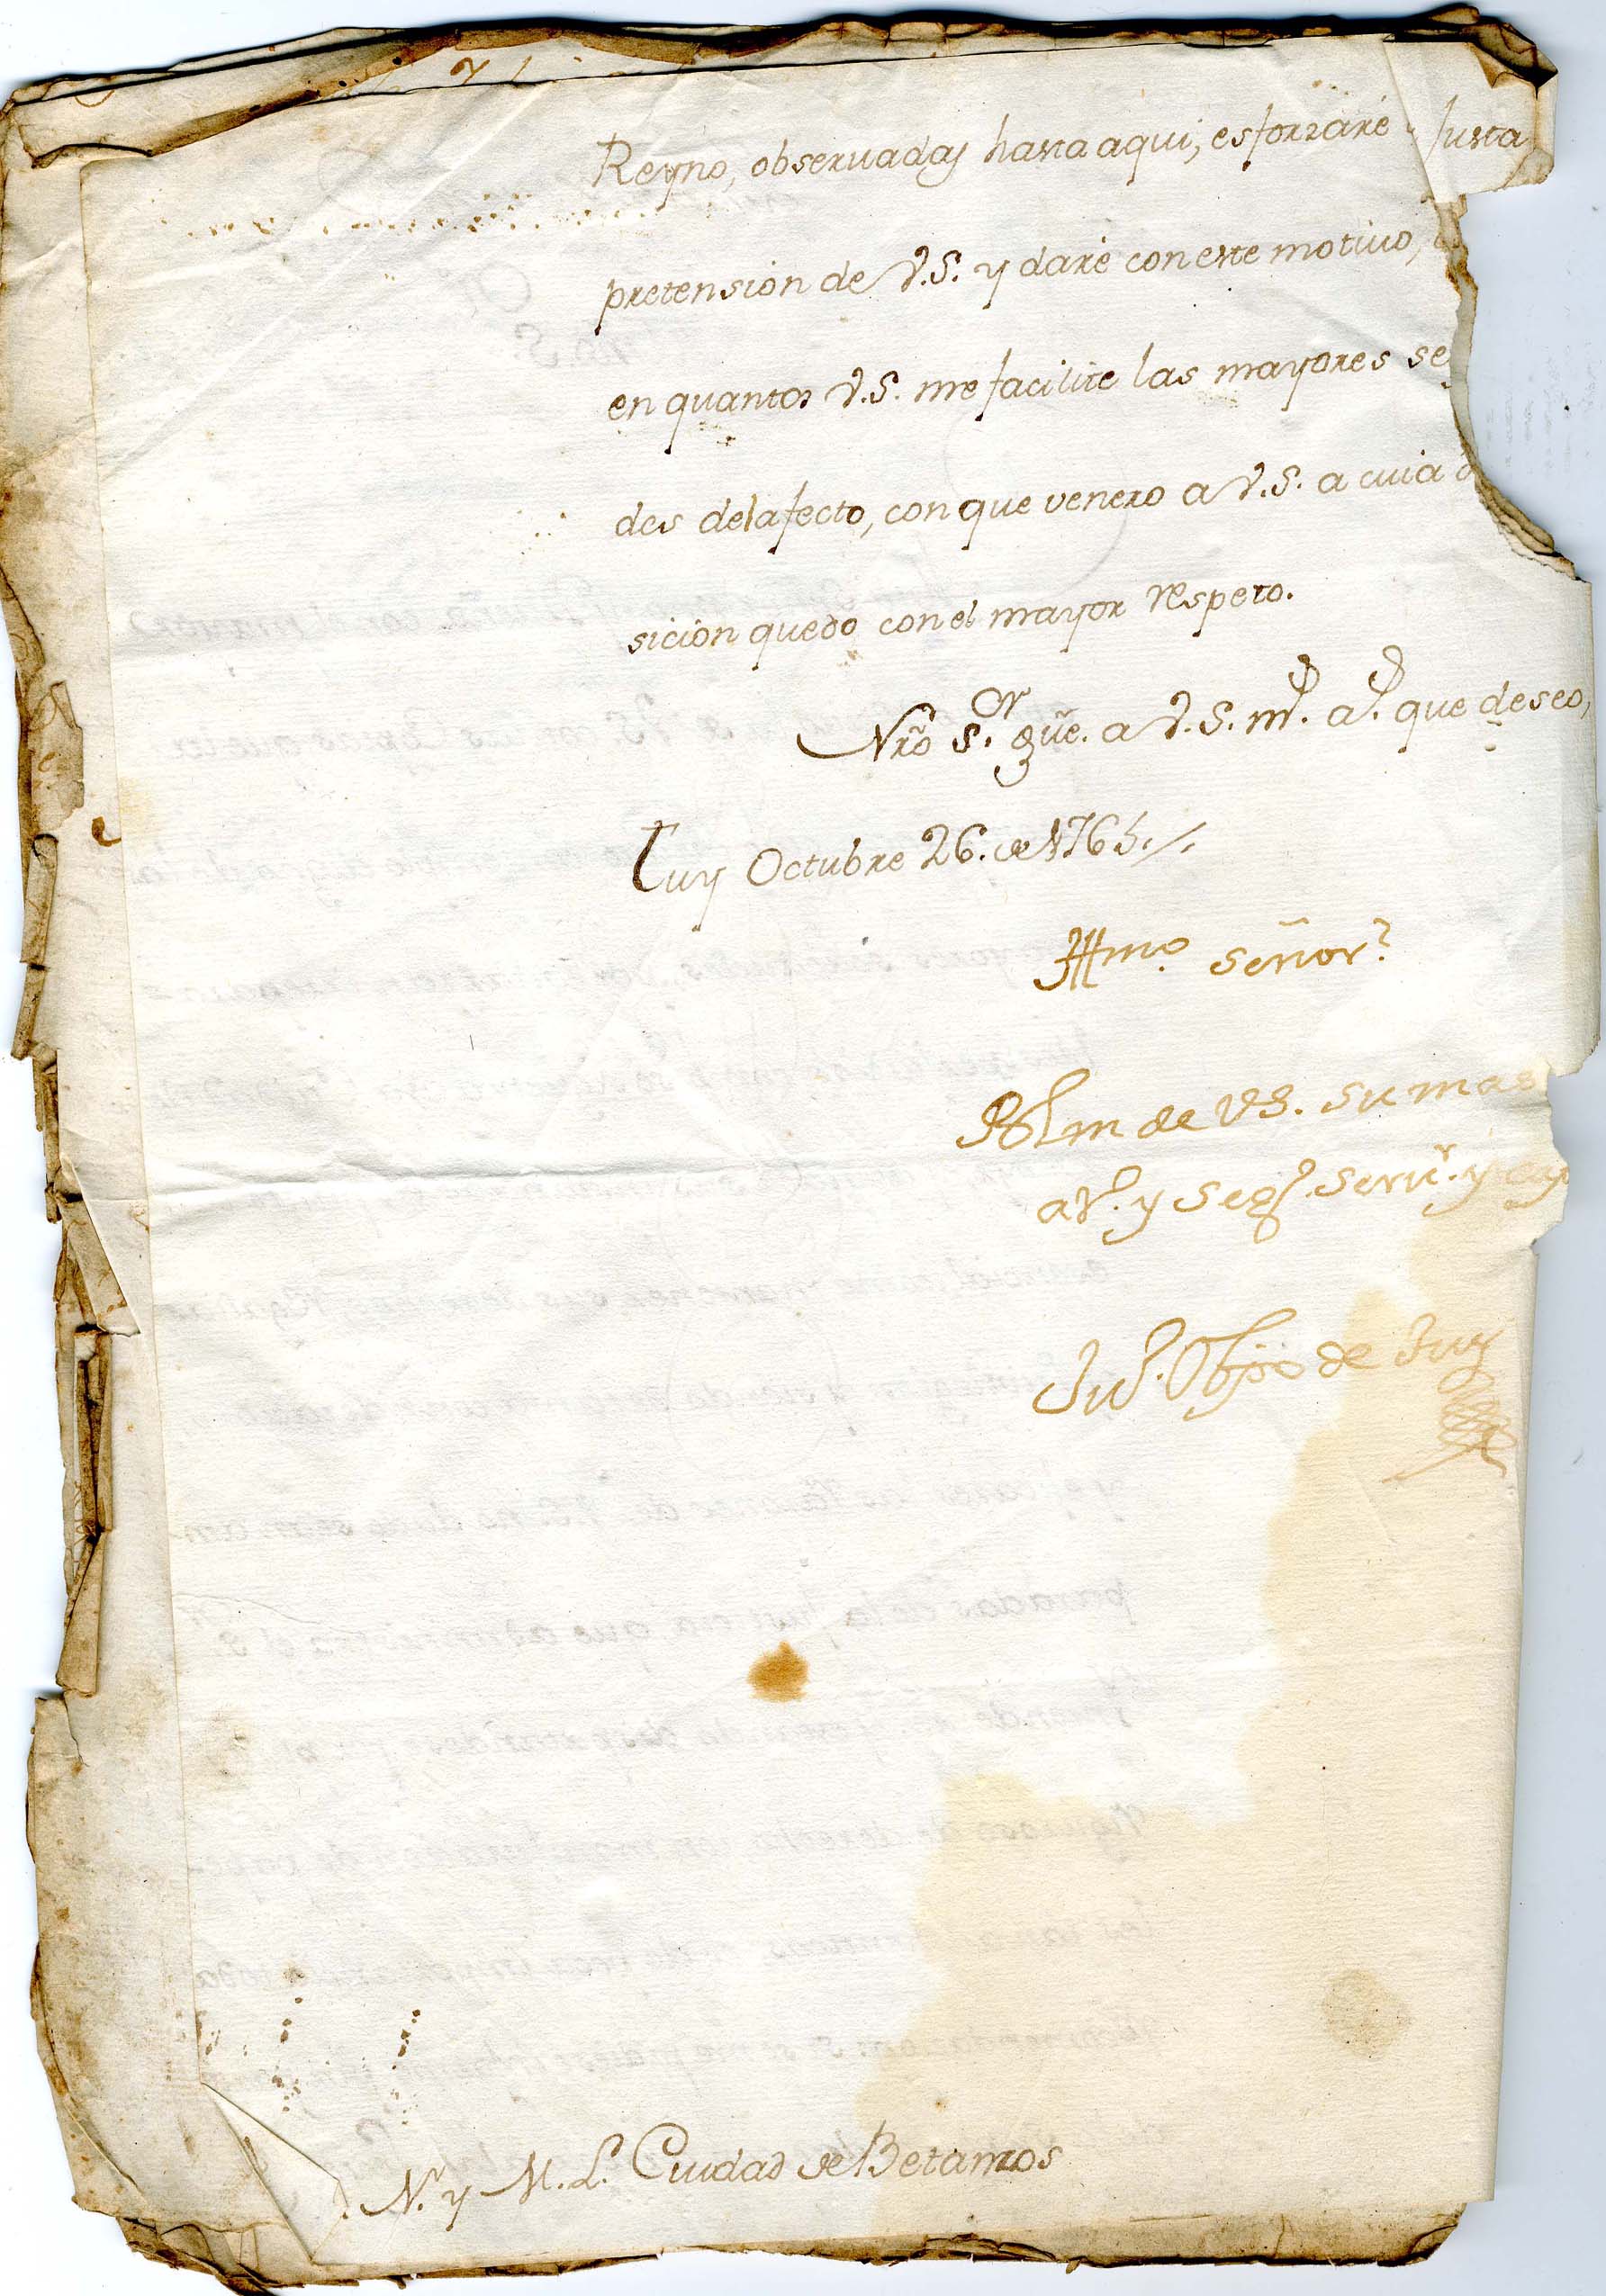 Reyno, observadas hasta aqui, esforzaré Justa
pretension de V.S. y daré con este motivo,
en quantos V.S. me facilite las mayores se
des del afecto, con que venero a V.S. a cuia
sicion quedo con el mayor respeto.
Nrõ S.or gũe. a V.S. m.s a.s que deseo,
Tuy Octubre 26. de 1765.
Illmo. Señor.
Blm de VS. su mas
at.o y seg.o serv.r y
Ju.n Obpo de Tuy
N. y M. L. Ciudad de Betanzos